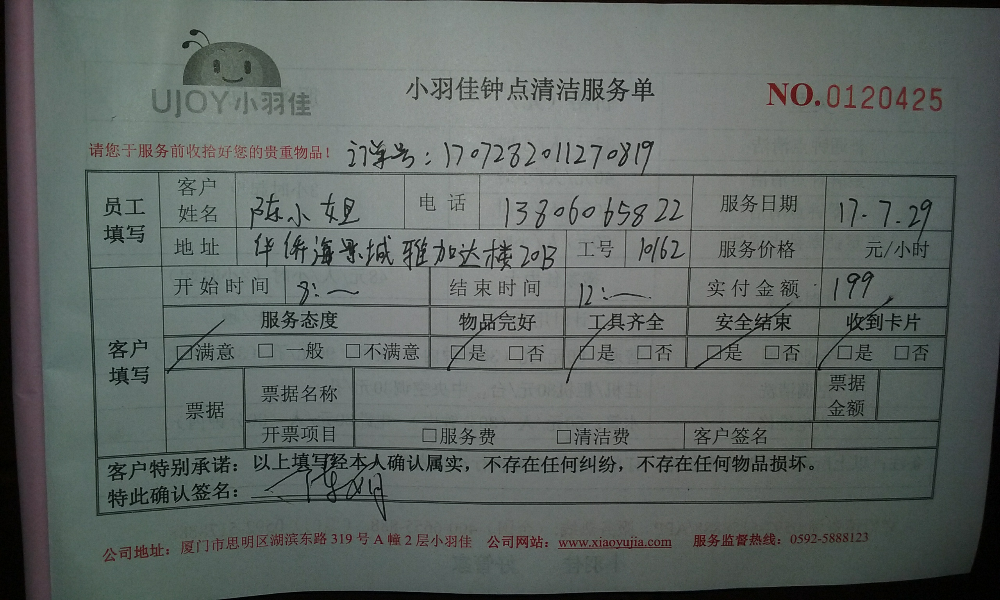 UJOY小羽佳
小羽佳钟点清洁服务单
NO.0120425
请您于服务前收拾好您的贵重物品！ 订单号：1707282011270819
员工填写 客户姓名 陈小姐 电话 13806065822 服务日期 17.7.29
地址 华侨海景城雅加达楼20B 工号 10162 服务价格 元/小时
客户填写 开始时间 8:— 结束时间 12:— 实付金额 199
服务态度 物品完好 工具齐全 安全结束 收到卡片
□满意 □一般 □不满意 □是 □否 □是 □否 □是 □否 □是 □否
票据 票据名称 票据金额
开票项目 □服务费 □清洁费 客户签名
客户特别承诺：以上填写经本人确认属实，不存在任何纠纷，不存在任何物品损坏。
特此确认签名：
公司地址：厦门市思明区湖滨东路 319 号 A 幢 2 层小羽佳 公司网站：www.xiaoyujia.com 服务监督热线：0592-5888123